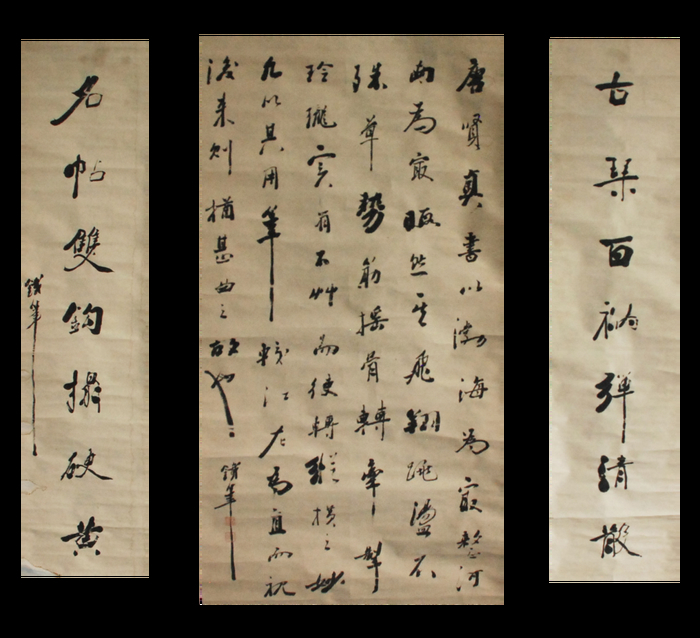 古琹百衲彈清散
唐賢真書以渤海為㝡整河
南為㝡暇然其飛翔跳盪不
殊草勢筋搖骨轉牽掣
玲瓏實有不艸而使轉縱橫之妙
凡以其用筆較江左為直而視
後來則猶甚曲之故也
鐵年
名帖雙鈎搨硬黃
鐵年